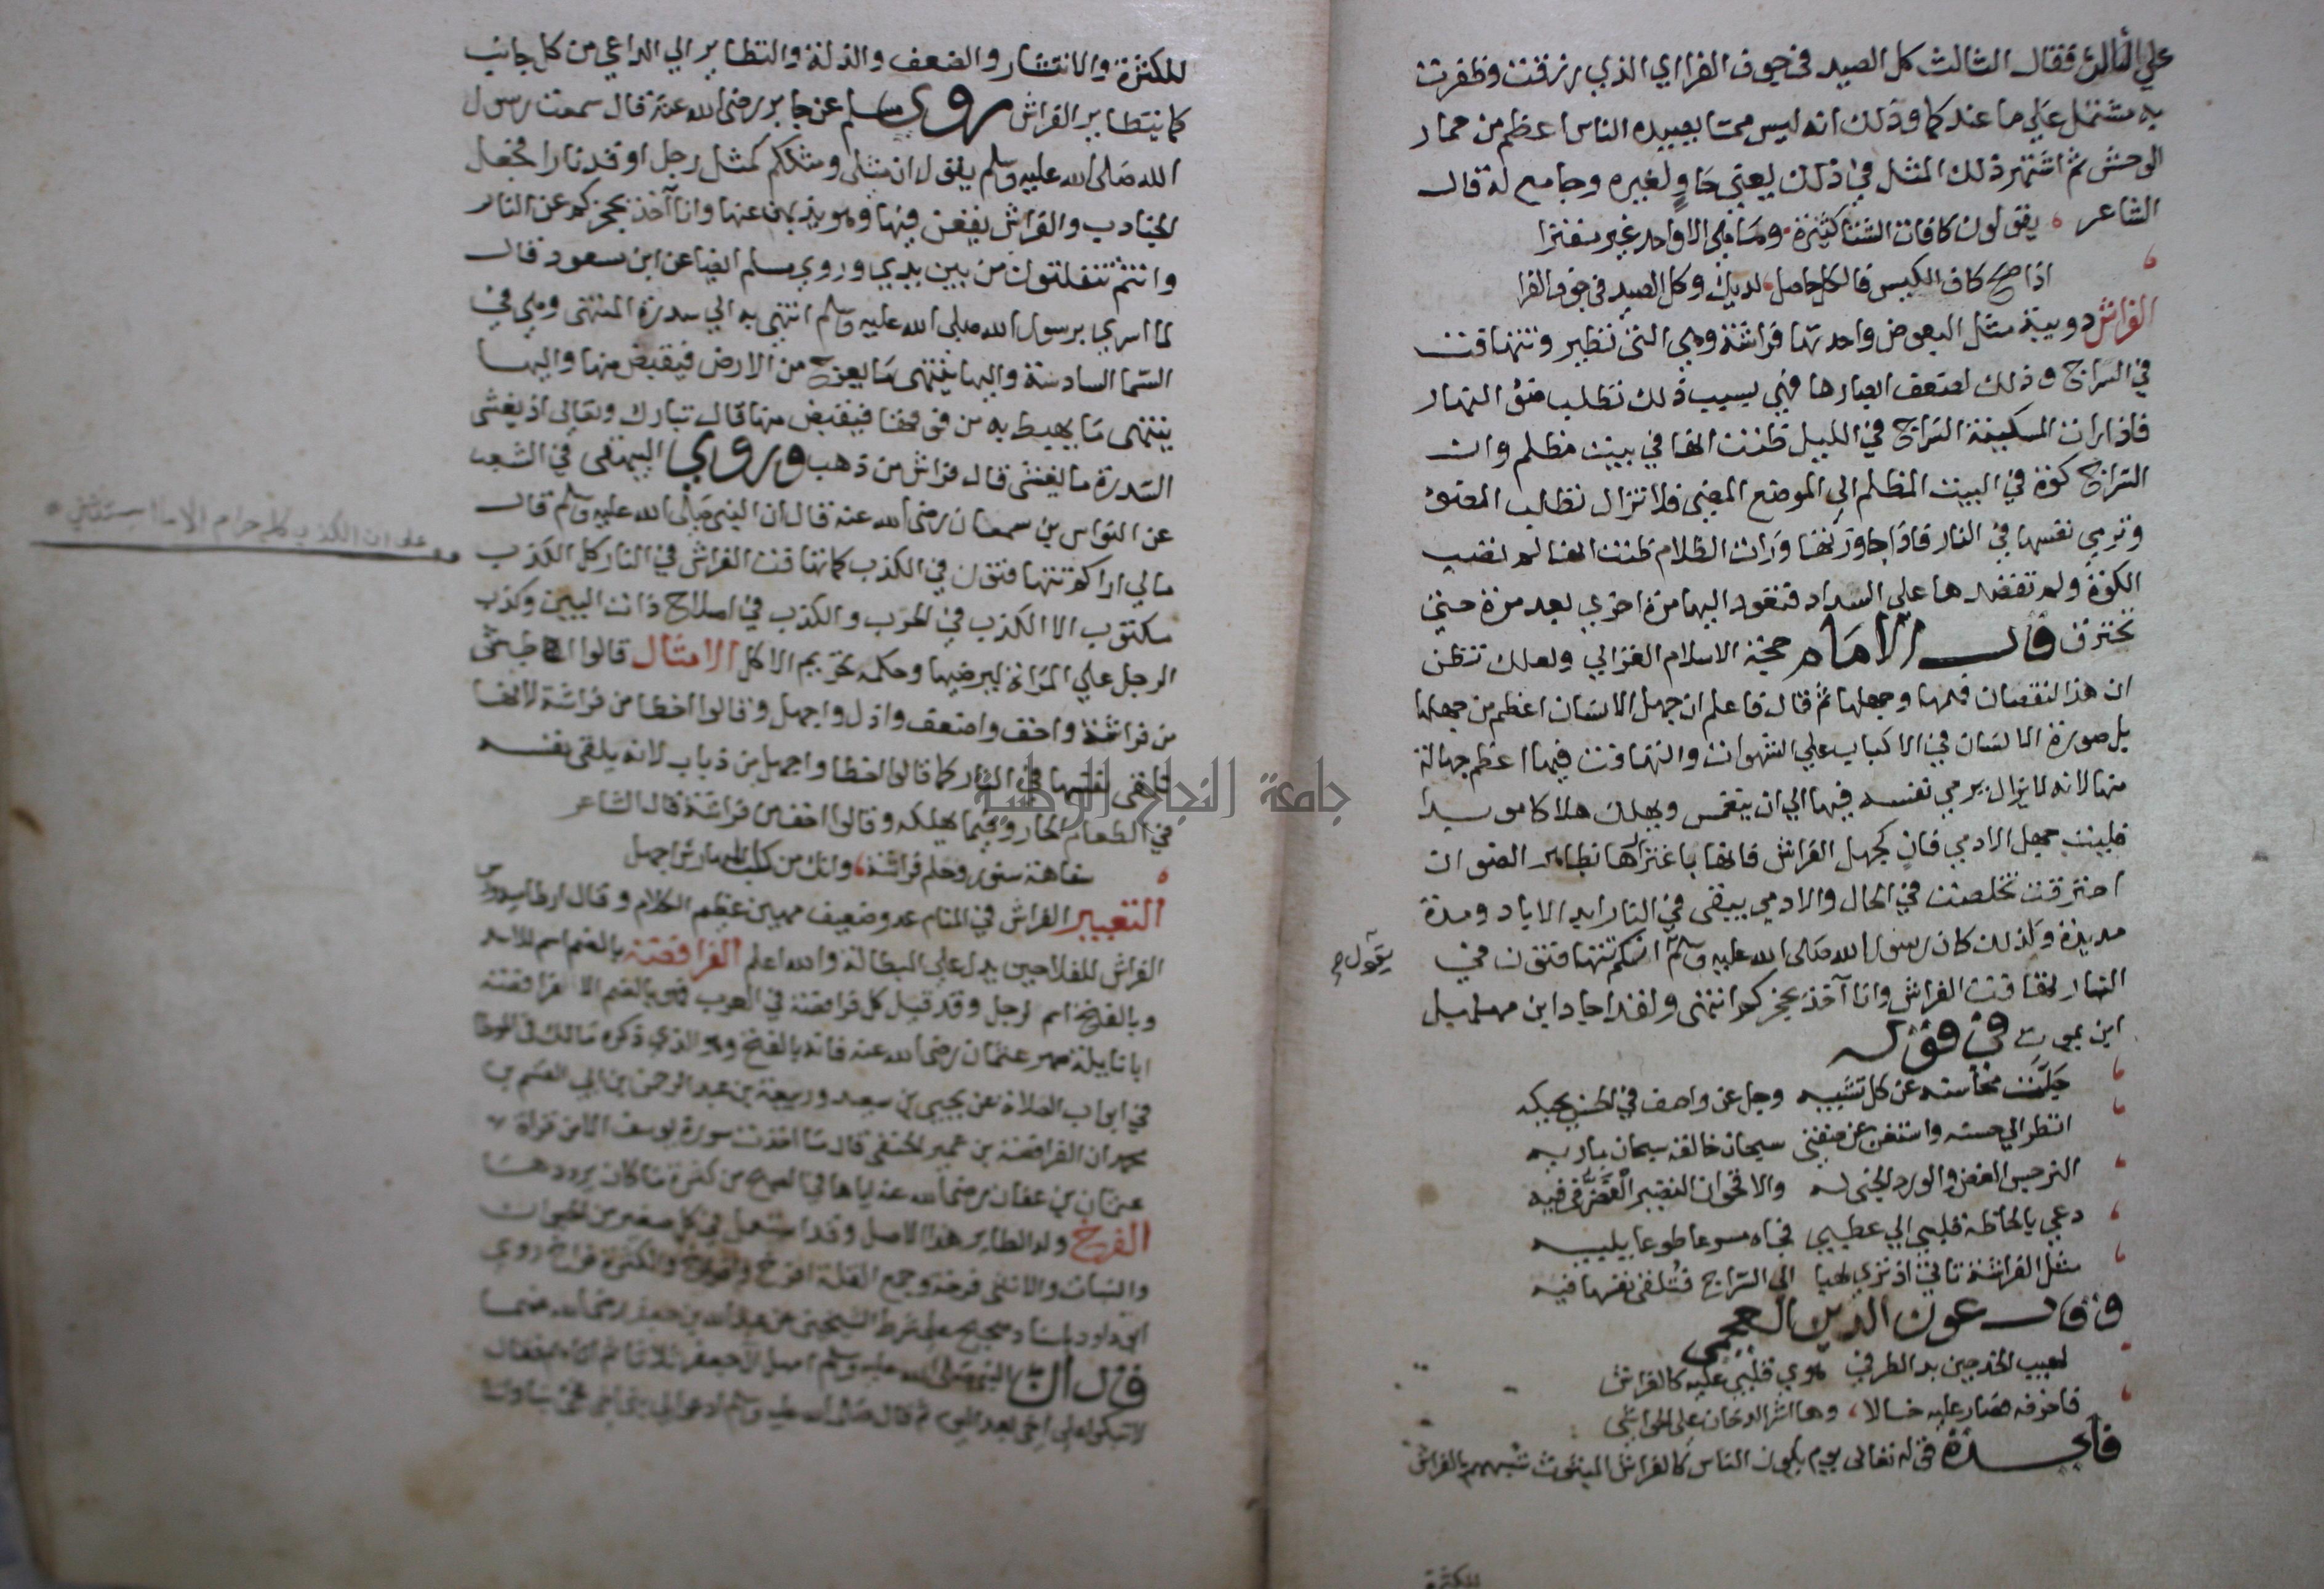 علي الثالث فقال الثالث كل الصيد في جوف الفرا اي الذي رزقت وظفرت
به مشتمل علي ما عندكما وذلك انه ليس مما يصيده الناس اعظم من حمار
الوحش ثم اشتهر ذلك المثل في ذلك يعني حاوٍ لغيره وجامع له قال
الشاعر يقولون كافات الشتا كثيرة وما هي الا واحد غير مفترا
اذا صح كاف الكيس فالكل حاصل لديك وكل الصيد في جوف الفرا
الفراش دويبة مثل البعوض واحدتها فراشة وهي التي تطير وتتهافت
في السراج وذلك لضعف ابصارها فهي بسبب ذلك تطلب ضؤ النهار
فاذا رات المسكينة السراج في الليل ظنت انها في بيت مظلم وان
السراج كوة في البيت المظلم الي الموضع المضي فلا تزال تطلب الضؤ
وترمي نفسها في النار فاذا جاوزتها ورات الظلام ظنت انها لم تصب
الكوة ولم تقصدها علي السداد فتعود اليها مرة اخري بعد مرة حتي
تحترق قال الامام حجة الاسلام الغزالي ولعلك تظن
ان هذا لنقصان فهمها وجهلها ثم قال فاعلم ان جهل الانسان اعظم من جهلها
بل صورة الانسان في الاكباب علي الشهوات والتهافت فيها اعظم جهالة
منها لانه لا يزال يرمي نفسه فيها الي ان ينغمس ويهلك هلاكا موبدا
فليت جهل الادمي كان كجهل الفراش فانها باغترارها بظاهر الضو ان
احترقت تخلصت في الحال والادمي يبقي في النار ابد الاباد ومدة
مديدة ولذلك كان رسول الله صلى الله عليه وسلم انكم تتهافتون في
يقول صح
النار تهافت الفراش وانا آخذ بحجزكم انتهى ولقد اجاد ابن مهلهيل
ابن يموت في قوله
جلت محاسنه عن كل تشبيه وجل عن واصف في الحسن يحكيه
انظر الي حسنه واستغن عن صفتي سبحان خالقه سبحان باريه
النرجس الغض والورد الجني له والاقحوان النضير الغض في فيه
دعي بالحاظه قلبي الي عطبي فجاه مسرعا طوعا يلبيه
مثل الفراشة تاتي اذ تري لهبا الي السراج فتلقي نفسها فيه
وقال عون الدين العجمي
لهيب الخد حين بد الطرفي هوي قلبي عليه كالفراش
فاحرقه فصار عليه خالا وها اثر الدخان على الحواشي
فايدة قوله تعالى يوم يكون الناس كالفراش المبثوث شبههم بالفراش
للكثرة
للكثرة والانتشار والضعف والذلة والتطاير الي الداعي من كل جانب
كما يتطاير الفراش روي مسلم عن جابر رضى الله عنه قال سمعت رسول
الله صلى الله عليه وسلم يقول ان مثلي ومثلكم كمثل رجل اوقد نارا فجعل
الجنادب والفراش يقعن فيها وهو يذبهن عنها وانا آخذ بحجزكم عن النار
وانتم تتفلتون من بين يدي وروي مسلم ايضا عن ابن مسعود قال
لما اسري برسول الله صلى الله عليه وسلم انتهي به الي سدرة المنتهى وهي في
السما السادسة واليها ينتهى ما يعرج من الارض فيقبض منها واليها
ينتهى ما يهبط به من فوقها فيقبض منها قال تبارك وتعالى اذ يغشى
السدرة ما يغشى قال فراش من ذهب وروي البيهقى في الشعب
عن النواس بن سمعان رضى الله عنه قال ان النبي صلى الله عليه وسلم قال
مالي اراكم تتهافتون في الكذب كما تتهافت الفراش في النار كل الكذب
على ان الكذب كله حرام الا ما استثني
مكتوب الا الكذب في الحرب والكذب في اصلاح ذات البين وكذب
الرجل علي المراة ليرضيها وحكمه تحريم الاكل الامثال قالوا اطيش
من فراشة واخف واضعف واذل واجهل وقالوا اخطا من فراشة لانها
تلقى نفسها في النار كما قالوا اخطا واجهل من ذباب لانه يلقى نفسه
في الطعام الحار وفيما يهلكه وقالوا اخف من فراشة قال الشاعر
سفاهة سنور وحلم فراشة وانك من كلب المهارش اجهل
التعبير الفراش في المنام عدو ضعيف مهين عظيم الكلام وقال ارطاميدورس
الفراش للفلاحين يدل علي البطالة والله اعلم الفرافصة بالضم اسم للاسد
وبالفتح اسم لرجل وقد قيل كل فرافصة في العرب فهو بالضم الا فرافصة
ابا نايلة صهر عثمان رضى الله عنه فانه بالفتح وهو الذي ذكره مالك في الموطا
في ابواب الصلاة عن يحيى بن سعيد وربيعة بن عبد الرحمن بن ابي القسم بن
محمد ان الفرافصة بن عمير الحنفي قال ما اخذت سورة يوسف الا من قراة
عثمان بن عفان رضى الله عنه اياها في الصبح من كثرة ما كان يرددها
الفرخ ولد الطاير هذا الاصل وقد استعمل في كل صغير من الحيوان
والنبات والانثى فرخة وجمع القلة افرخ وافراخ والكثرة فراخ روي
ابي داود باسناد صحيح على شرط الشيخين عن عبد الله بن جعفر رضى الله عنهما
قال ان النبي صلى الله عليه وسلم امهل ال جعفر ثلاثا ثم اتاهم فقال
لا تبكوا على اخي بعد اليوم ثم قال صلى الله عليه وسلم ادعوا لي بني اخي
جامعة النجاح الوطنية